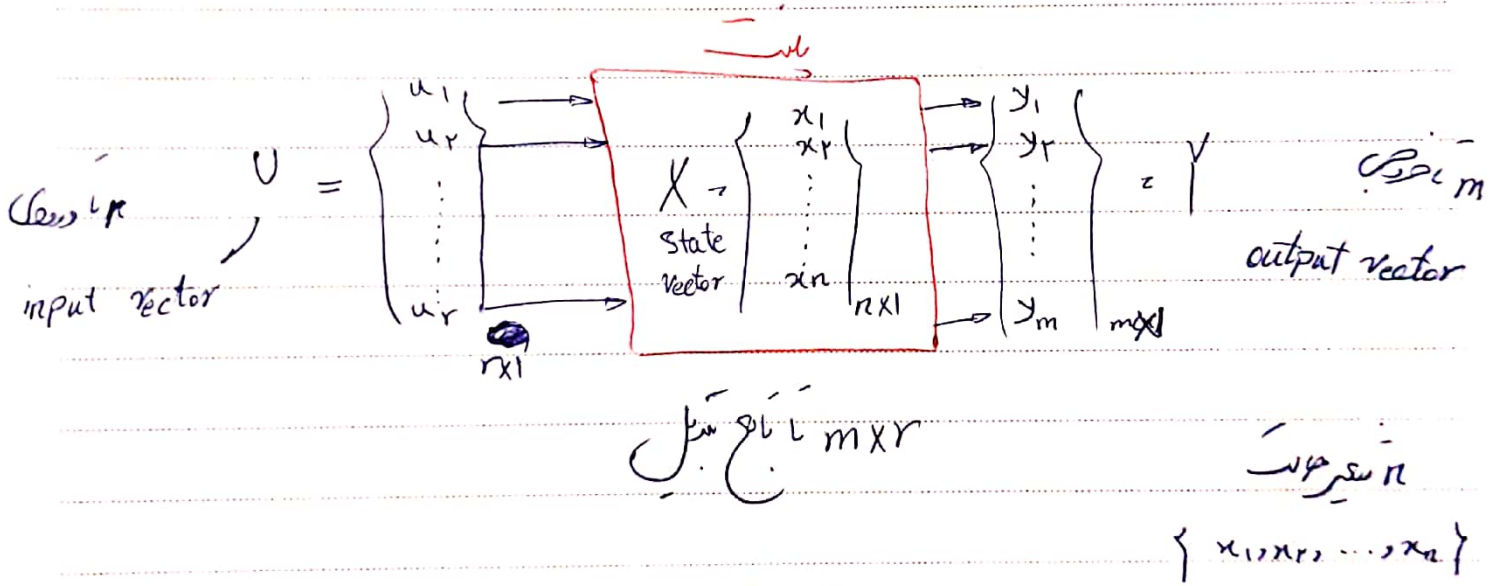 U = { u₁ u₂ ⋮ uᵣ } r×1
r تا ورودی
input vector
X = { x₁ x₂ ⋮ xₙ } n×1
state vector
{ y₁ y₂ ⋮ yₘ } m×1 = Y
m تا خروجی
output vector
m×r تا تابع تبدیل
n متغیر حالت
{ x₁, x₂, ..., xₙ }